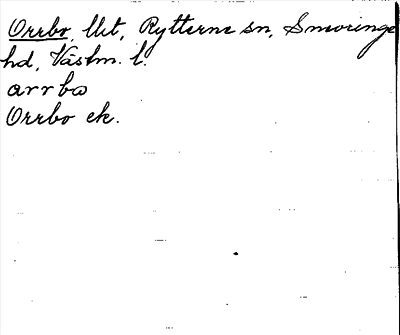 Orrbo, lht, Rytterne sn, Snevringe
hd, Västm. l.
arrbω
Orrbo ek.